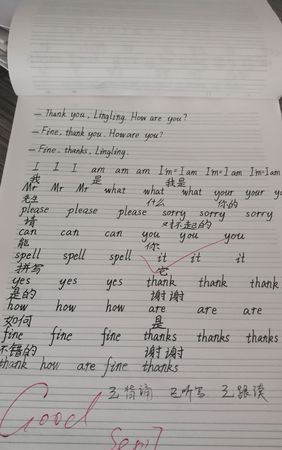 — Thank you, Lingling. How are you?
— Fine, thank you. How are you?
— Fine, thanks, Lingling.
I I I am am am I'm=I am I'm=I am I'm=I am
我 是 我是
Mr Mr Mr what what what your your yo
先生 什么 你的
please please please sorry sorry sorry
请 对不起的
can can can you you you
能 你
spell spell spell it it it
拼写 它
yes yes yes thank thank thank
是的 谢谢
how how how are are are
如何 是
fine fine fine thanks thanks thanks
不错的 谢谢
thank how are fine thanks
已背诵 已听写 已跟读
Good